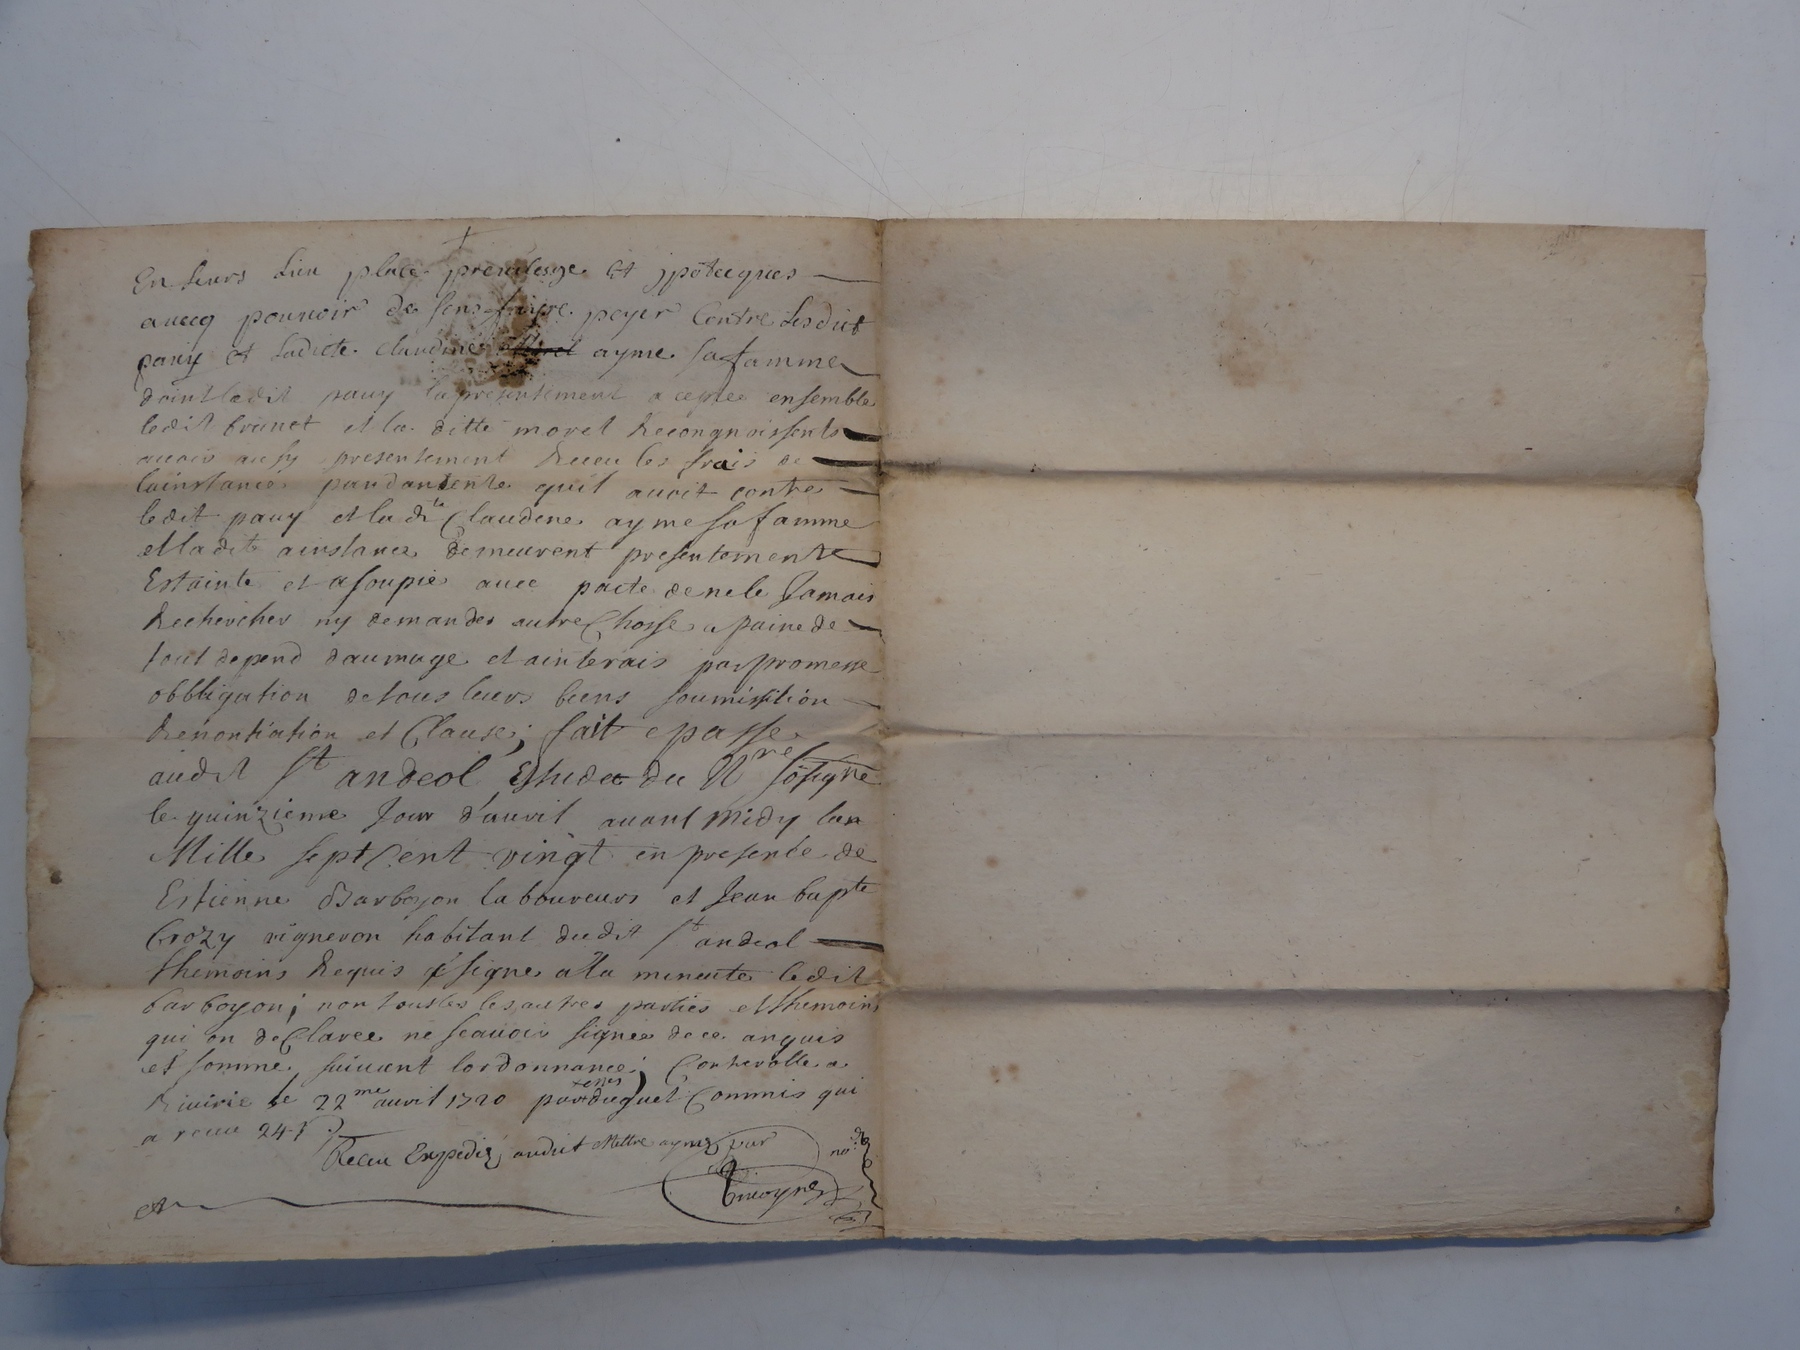 En leurs Lieu place previlesge Et jpotecques
avecq pouvoir de sens faire peyer Contre Lesdict
pauy Et Ladicte claudine ayme sa famme
dointledit pauy la presentement acepte ensemble
ledit brunet et la ditte morel Recongnoissents
avoir ausy presentement Receu les frais de
lainstance pandantente quil avoit contre
ledit pauy et la dte Claudene ayme sa famme
et ladite ainstance demeurent presentemente
Estainte et asoupie avec pacte denele Jamais
Rechercher ny demander autre Chosse a paine de
tout depend daumage et ainterais par promesse
obbligation detous leurs biens soumisition
Renontiation et Clause; fait e passe
audit St andeol Estude du Nre sosigne
le quinzieme Jour d'avril avant midy lan
Mille sept Cent vingt en presence de
Estienne Barboyon laboureurs et Jean bapte
Crozy vigneron habitant dudit St andeol
thémoins Requis é signe a la minente ledit
barboyon; non toustes les autres parties et themoins
qui on de Claree ne scavoir signer de ce anquis
et somme suivent lordonnance; Contrerolle a
Rivirie le 22me avril 1720 par duguet Commis qui
a reçue 24 s
Expedié audit Mettre aymez par no